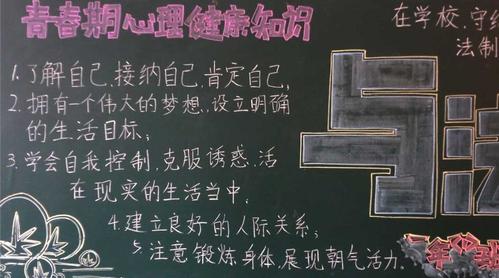 青春期心理健康知识
1.了解自己,接纳自己,肯定自己,
2.拥有一个伟大的梦想,设立明确
的生活目标;
3.学会自我控制,克服诱惑,活
在现实的生活当中;
4.建立良好的人际关系;
5.注意锻炼身体,展现朝气活力.
在学校,守
法制
与法
年 班